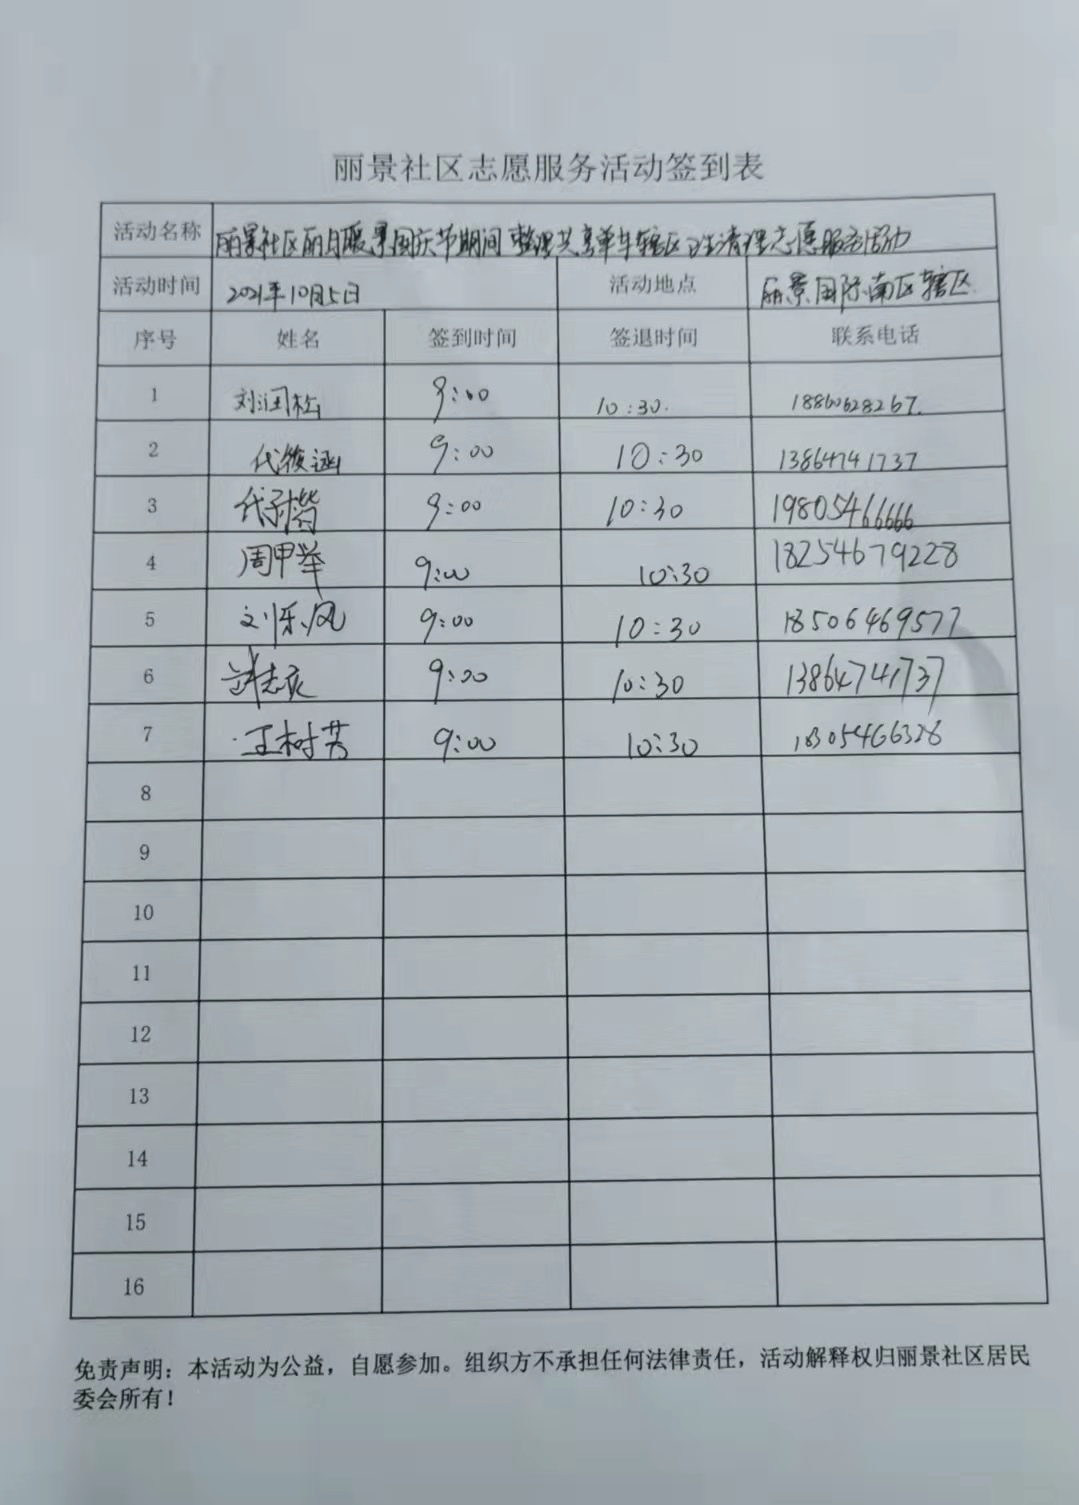 丽景社区志愿服务活动签到表
活动名称 丽景社区丽月暖景国庆节期间整理共享单车辖区卫生清理志愿服务活动
活动时间 2021年10月5日 活动地点 丽景国际南区辖区
序号 姓名 签到时间 签退时间 联系电话
1 刘润松 9:00 10:30. 18860628267.
2 代俊涵 9:00 10:30 13864741737
3 9:00 10:30 19805466666
4 周甲举 9:00 10:30 18254679228
5 刘乐风 9:00 10:30 18506469577
6 9:00 10:30 13864741737
7 王树芳 9:00 10:30 18305466328
8
9
10
11
12
13
14
15
16
免责声明：本活动为公益，自愿参加。组织方不承担任何法律责任，活动解释权归丽景社区居民
委会所有！